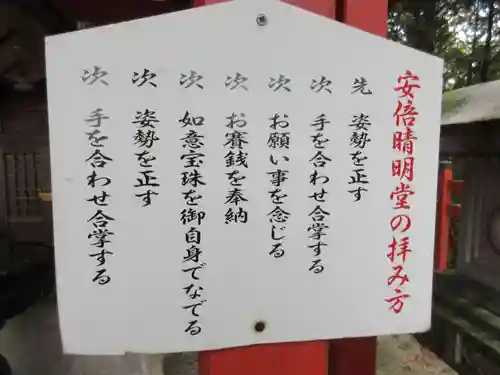 安倍晴明堂の拝み方
先 姿勢を正す
次 手を合わせ合掌する
次 お願い事を念じる
次 お賽銭を奉納
次 如意宝珠を御自身でなでる
次 姿勢を正す
次 手を合わせ合掌する